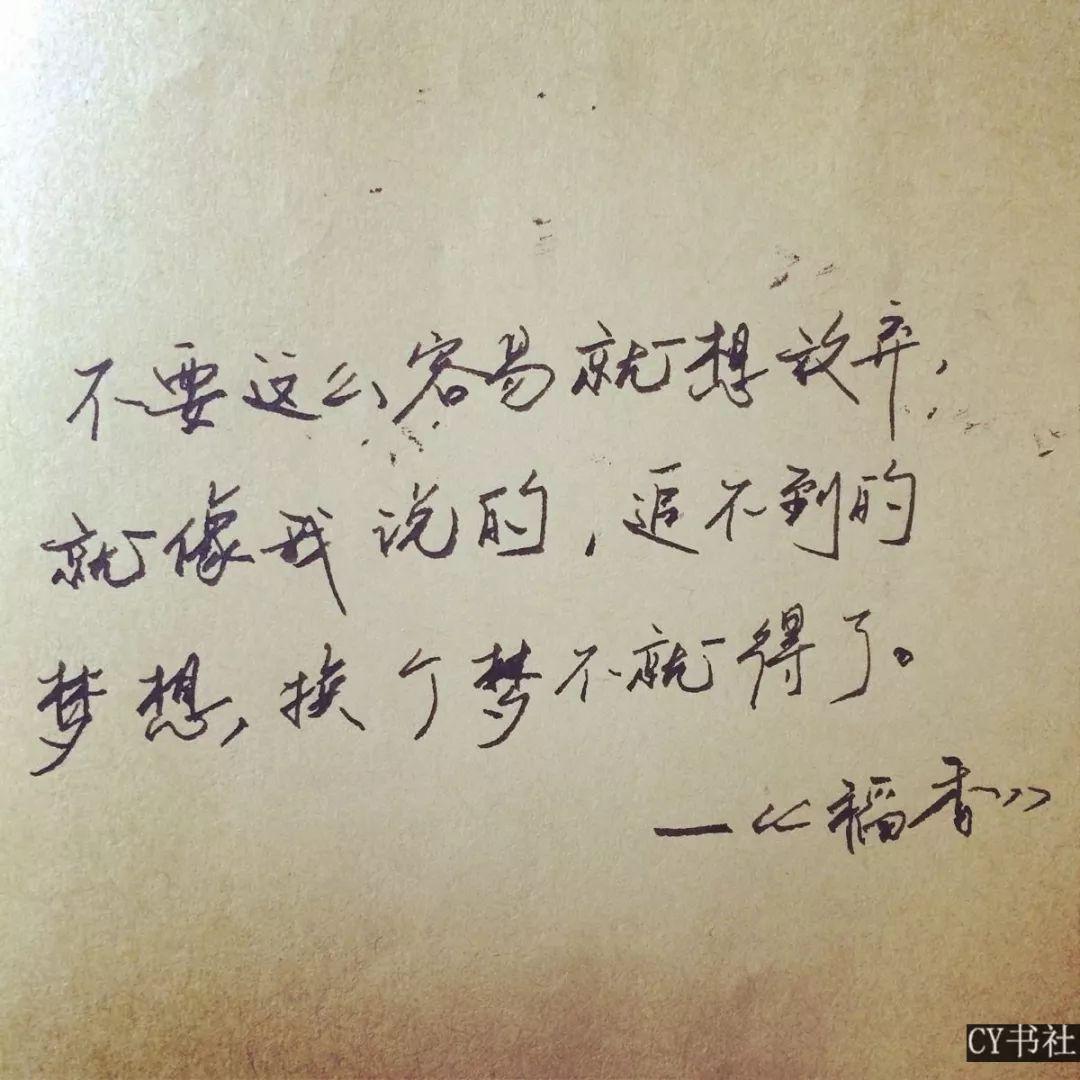 不要这么容易就想放弃，
就像我说的，追不到的
梦想，换个梦不就得了。
—《稻香》
CY书社